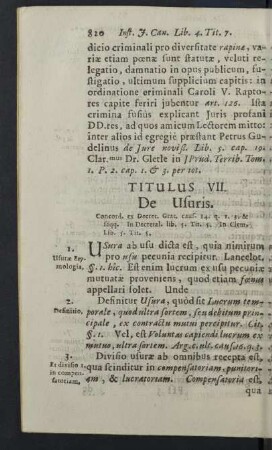 820 Inst. J. Can. Lib. 4. Tit. 7.
dicio criminali pro diversitate rapinæ, va-
riæ etiam pœnæ sunt statutæ, veluti re-
legatio, damnatio in opus publicum, fu-
stigatio, ultimum supplicium capitis: in
ordinatione criminali Caroli V. Rapto-
res capite feriri jubentur art. 126. Ista
crimina fusiùs explicant Juris profani
DD.res, ad quos amicum Lectorem mitto:
inter alios id egregiè præstant Petrus Gu-
delinus de Jure noviss. Lib. 5. cap. 19.
Clar.mus Dr. Gletle in J Prud. Territ. Tom.
1. P. 2. cap. 1. & 3. per tot.
TITULUS VII.
De Usuris.
Concord. ex Decret. Grat. caus. 14. q. 2. 3. &
seqq. In Decretal. lib. 5. Tit. 5. In Clem.
Lib. 5. Tit. 5.
1.
Usuræ Ety-
mologia.
USura ab usu dicta est, quia nimirum
pro usu pecunia recipitur. Lancelot.
§. 1. hìc. Est enim lucrum ex usu pecuniæ
mutuatæ proveniens, quod etiam fœnus
appellari solet. Unde
2.
Definitio.
Definitur Usura, quòd sit Lucrum tem-
porale, quod ultra sortem, seu debitum prin-
cipale, ex contractu mutui percipitur. Cit.
§. 1. Vel, est Voluntas capiendi lucrum ex
mutuo, ultra sortem. Arg. c. ult. caus. 14. q. 3.
3.
Et divisio
in compen-
satoriam,
Divisio usuræ ab omnibus recepta est,
qua scinditur in compensatoriam, punitori-
am, & lucratoriam. Compensatoria est,
qua